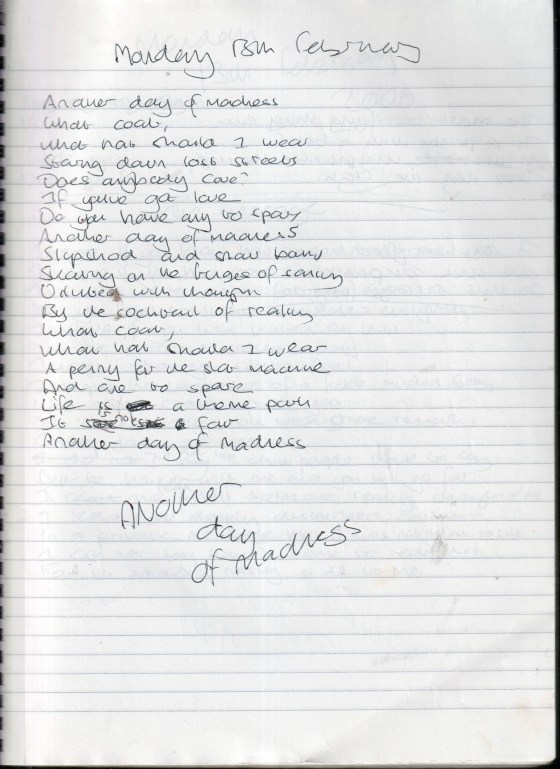 Monday 13th February
Another day of madness
What coat,
what hat should I wear
Staring down lost streets
Does anybody care?
If you've got love
Do you have any to spare
Another day of madness
Slipshod and straw
on the fringes of
with
By the of reality
What coat,
What hat should I wear
A penny for the slot machine
And one to spare
Life is a theme park
It is not fair
Another day of madness
ANOther
day
of madness